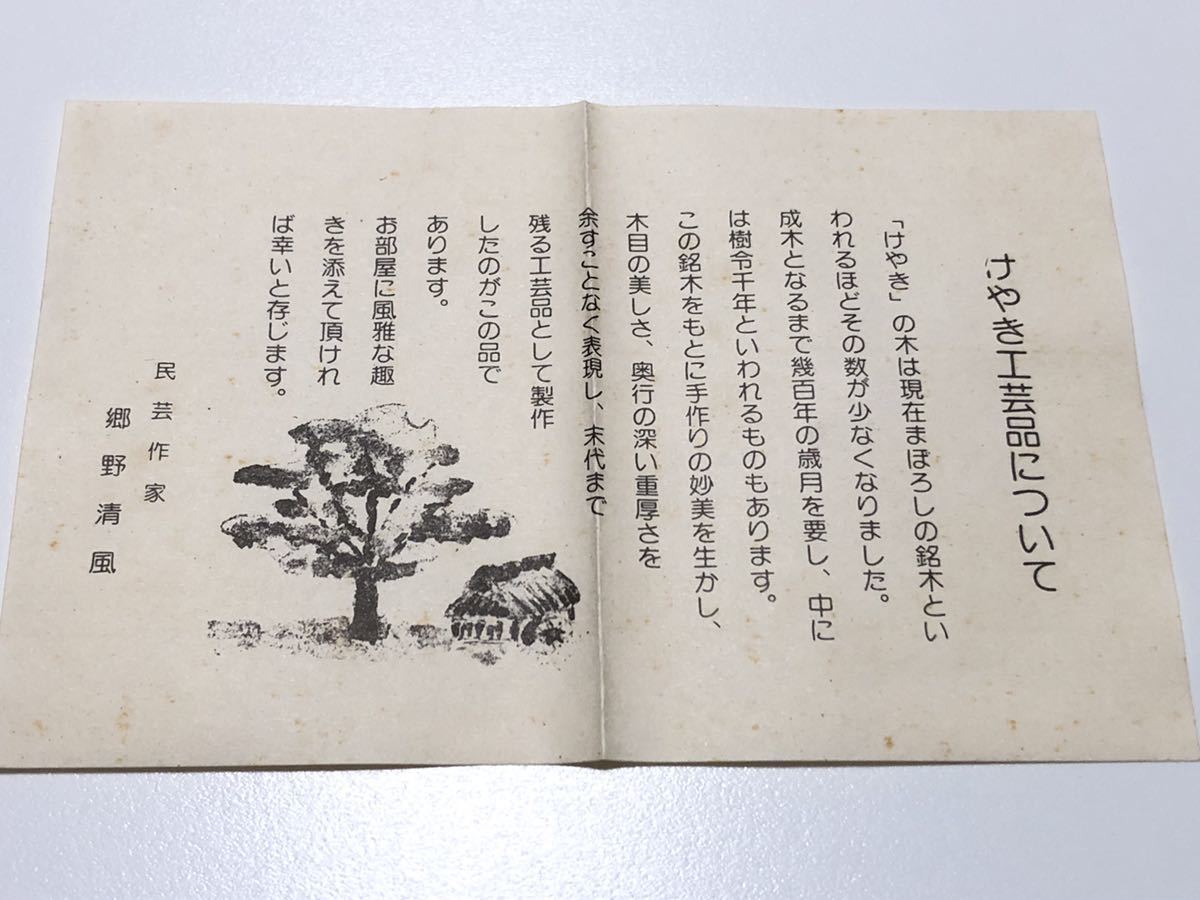 けやき工芸品について
「けやき」の木は現在まぼろしの銘木とい
われるほどその数が少なくなりました。
成木となるまで幾百年の歳月を要し、中に
は樹令千年といわれるものもあります。
この銘木をもとに手作りの妙美を生かし、
木目の美しさ、奥行の深い重厚さを
余すことなく表現し、末代まで
残る工芸品として製作
したのがこの品で
あります。
お部屋に風雅な趣
きを添えて頂けれ
ば幸いと存じます。
民芸作家
郷野清風